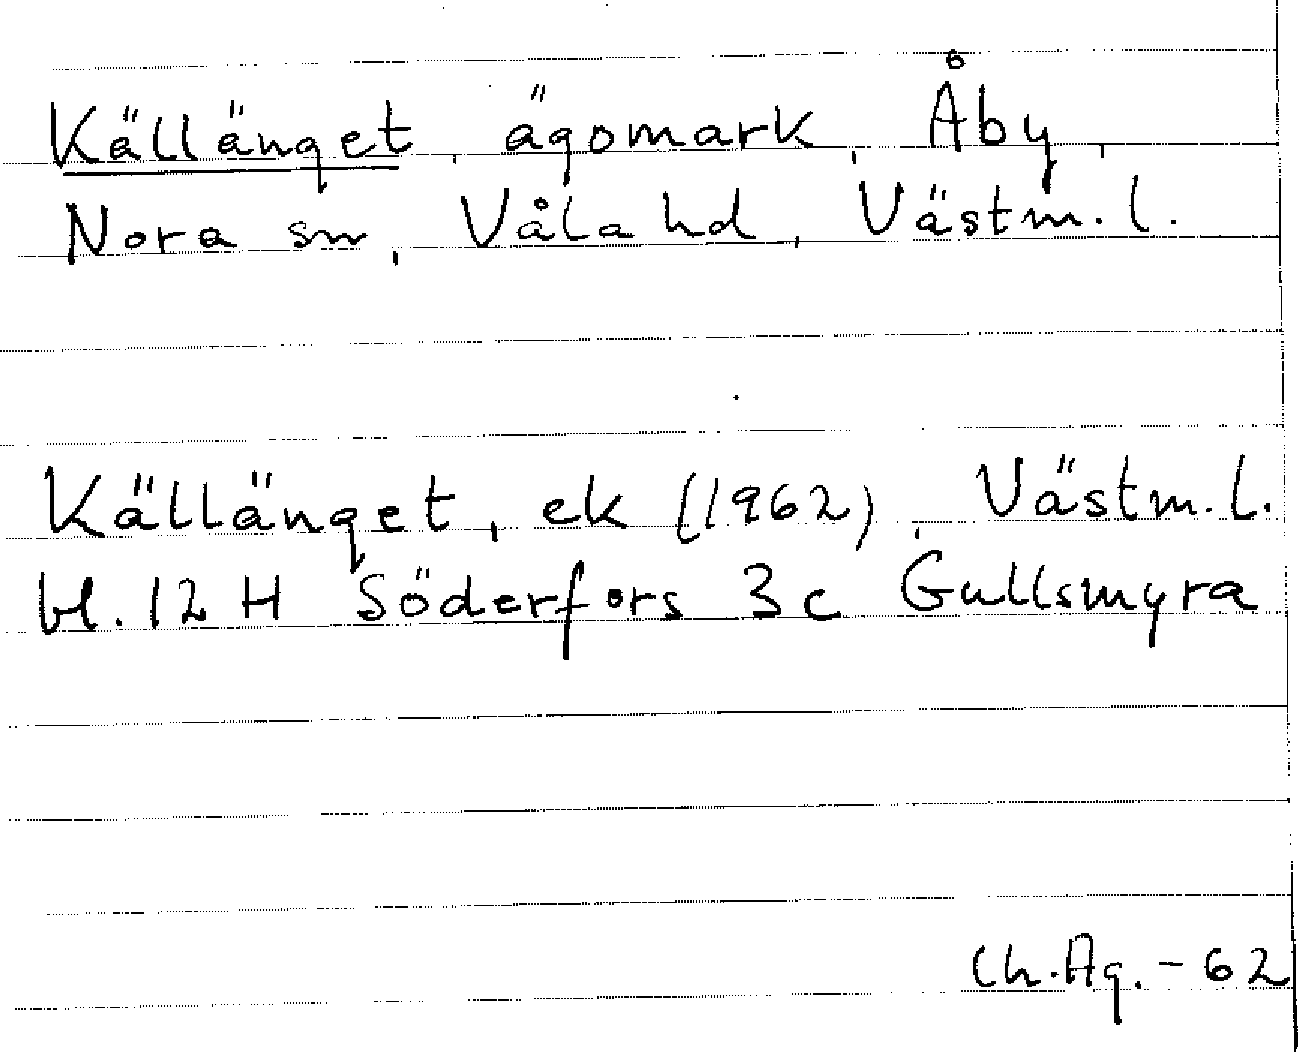 Källänget, ägomark, Åby,
Nora sn, Våla hd, Västm. l.
Källänget, ek (1962), Västm. l.
bl. 12 H Söderfors 3 c Gullsmyra
Ch. Ag. - 62